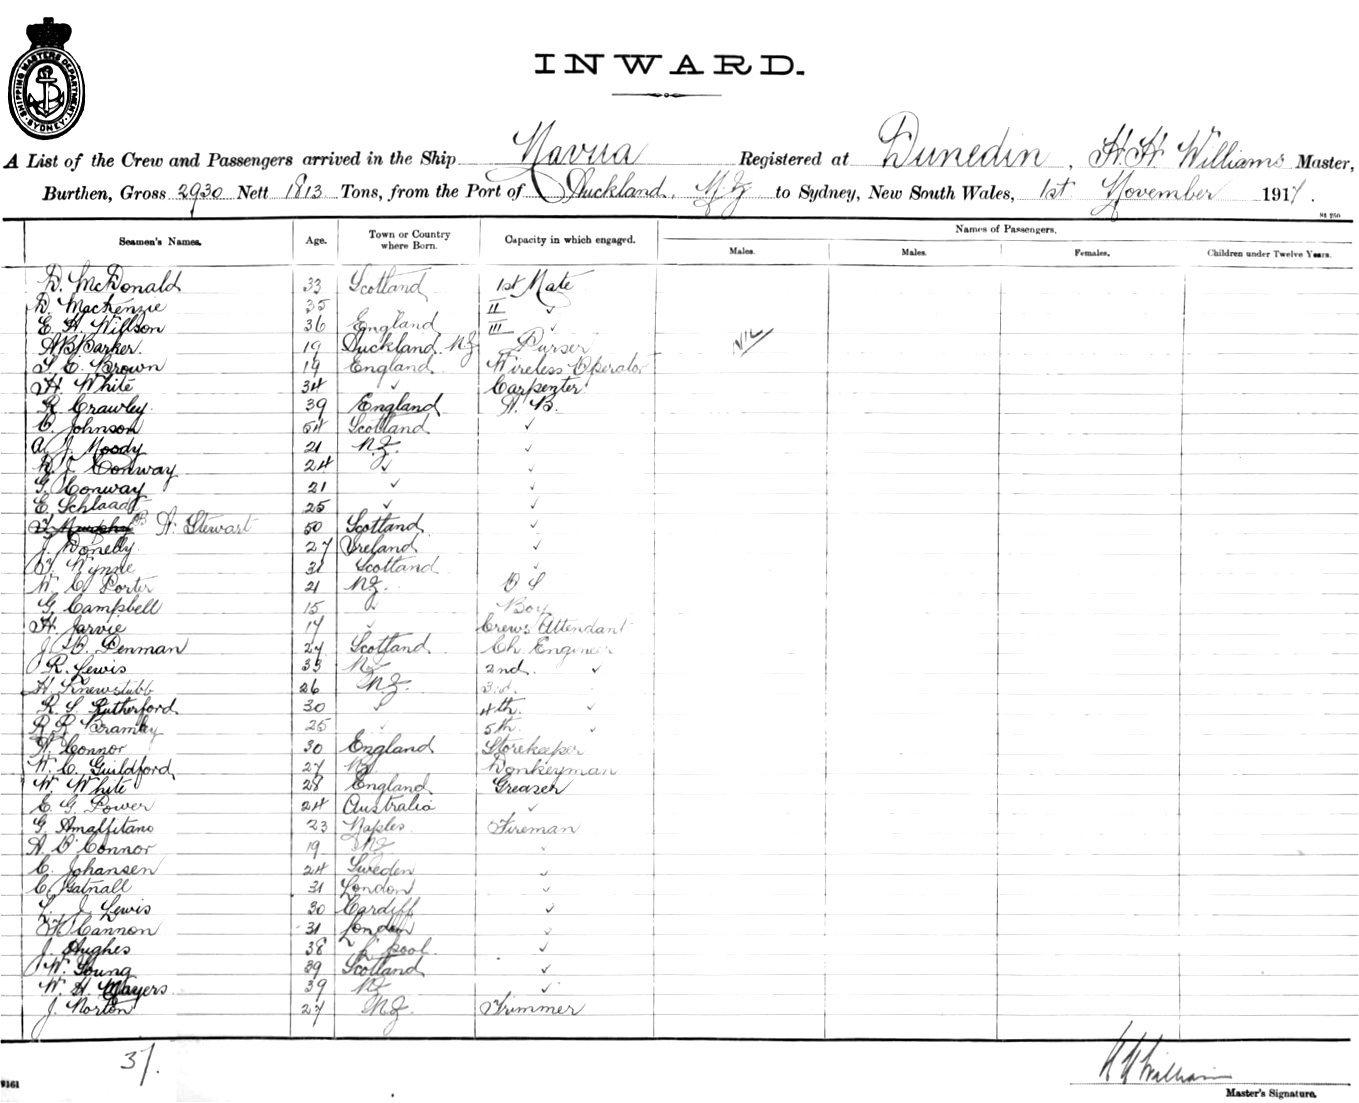 SHIPPING MASTERS DEPARTMENT
SYDNEY
INWARD.
A List of the Crew and Passengers arrived in the Ship Navua Registered at Dunedin, H. H. Williams Master,
Burthen, Gross 2930 Nett 1813 Tons, from the Port of Auckland, N.Z to Sydney, New South Wales, 1st November 1917.
Seamen's Names. Age. Town or Country where Born. Capacity in which engaged. Names of Passengers.
Males. Males. Females. Children under Twelve Years.
D. McDonald 33 Scotland 1st Mate
D. Mackenzie 35 II ✓
E. H. Willson 36 England III ✓
A B Barker. 19 Auckland NZ Purser NIL
E. Brown 19 England Wireless Operator
H. White 34 ✓ Carpenter
R. Crawley. 39 England A. B.
C. Johnson 54 Scotland ✓
A. J. Moody 21 NZ. ✓
Conway 24 ✓ ✓
G. Conway 21 ✓ ✓
E. Schlaadt 25 ✓ ✓
H. Stewart 50 Scotland ✓
J. Donelly. 27 Ireland ✓
Wynne 31 Scotland ✓
W. C. Porter 21 NZ. O S
G. Campbell 15 ✓ Boy
H. Jarvie 17 ✓ Crews Attendant
J. B. Penman 27 Scotland Ch. Engineer
R. Lewis 33 NZ 2nd. ✓
H. Knewstubb 26 NZ. 3rd.
R. S. Rutherford 30 ✓ 4th. ✓
R. R. Bramley 25 ✓ 5th. ✓
Connor 30 England Storekeeper
W. C. Guildford 27 NZ Donkeyman
W. White 28 England Greaser
E. G. Power 24 Australia ✓
G. Amalfitano 23 Naples. Fireman
A. O'Connor 19 NZ ✓
C. Johansen 24 Sweden ✓
C. Gatnall 31 London ✓
L. J. Lewis 30 Cardiff ✓
Cannon 31 London ✓
J. Hughes 38 L'pool. ✓
W. Young 39 Scotland ✓
W. H. Mayers. 39 NZ ✓
J. Norton 27 NZ. Trimmer
37.
H H Williams
Master's Signature.